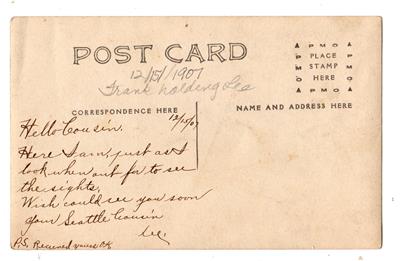 POST CARD
12/15/1907
Frank holding Lee
CORRESPONDENCE HERE
NAME AND ADDRESS HERE
PMO
PLACE
STAMP
HERE
PMO
Hello Cousin.
12/15/07
Here I am, just as I
look when out for to see
the sights.
Wish could see you soon
your Seattle Cousin
Lee.
P.S. Received yours OK